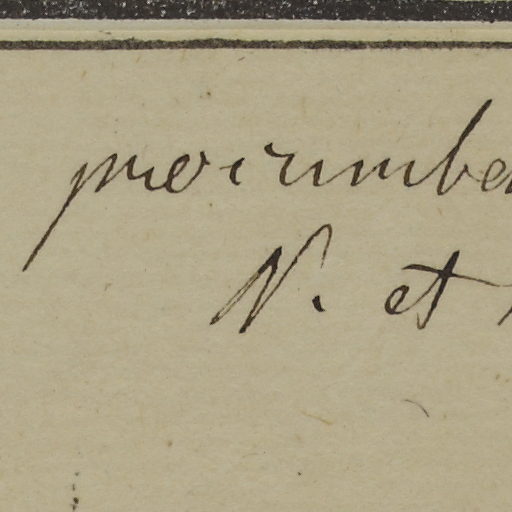 procumbe
N. et